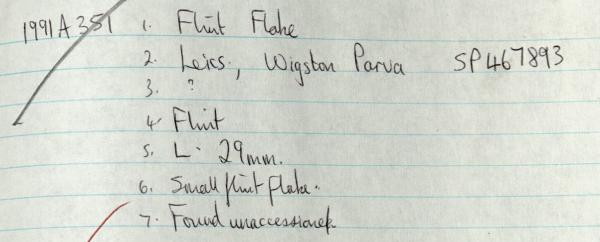 1991A351 1. Flint Flake
2. Leics., Wigston Parva SP467893
3. ?
4. Flint
5. L. 29mm.
6. Small flint flake.
7. Found unaccessioned.